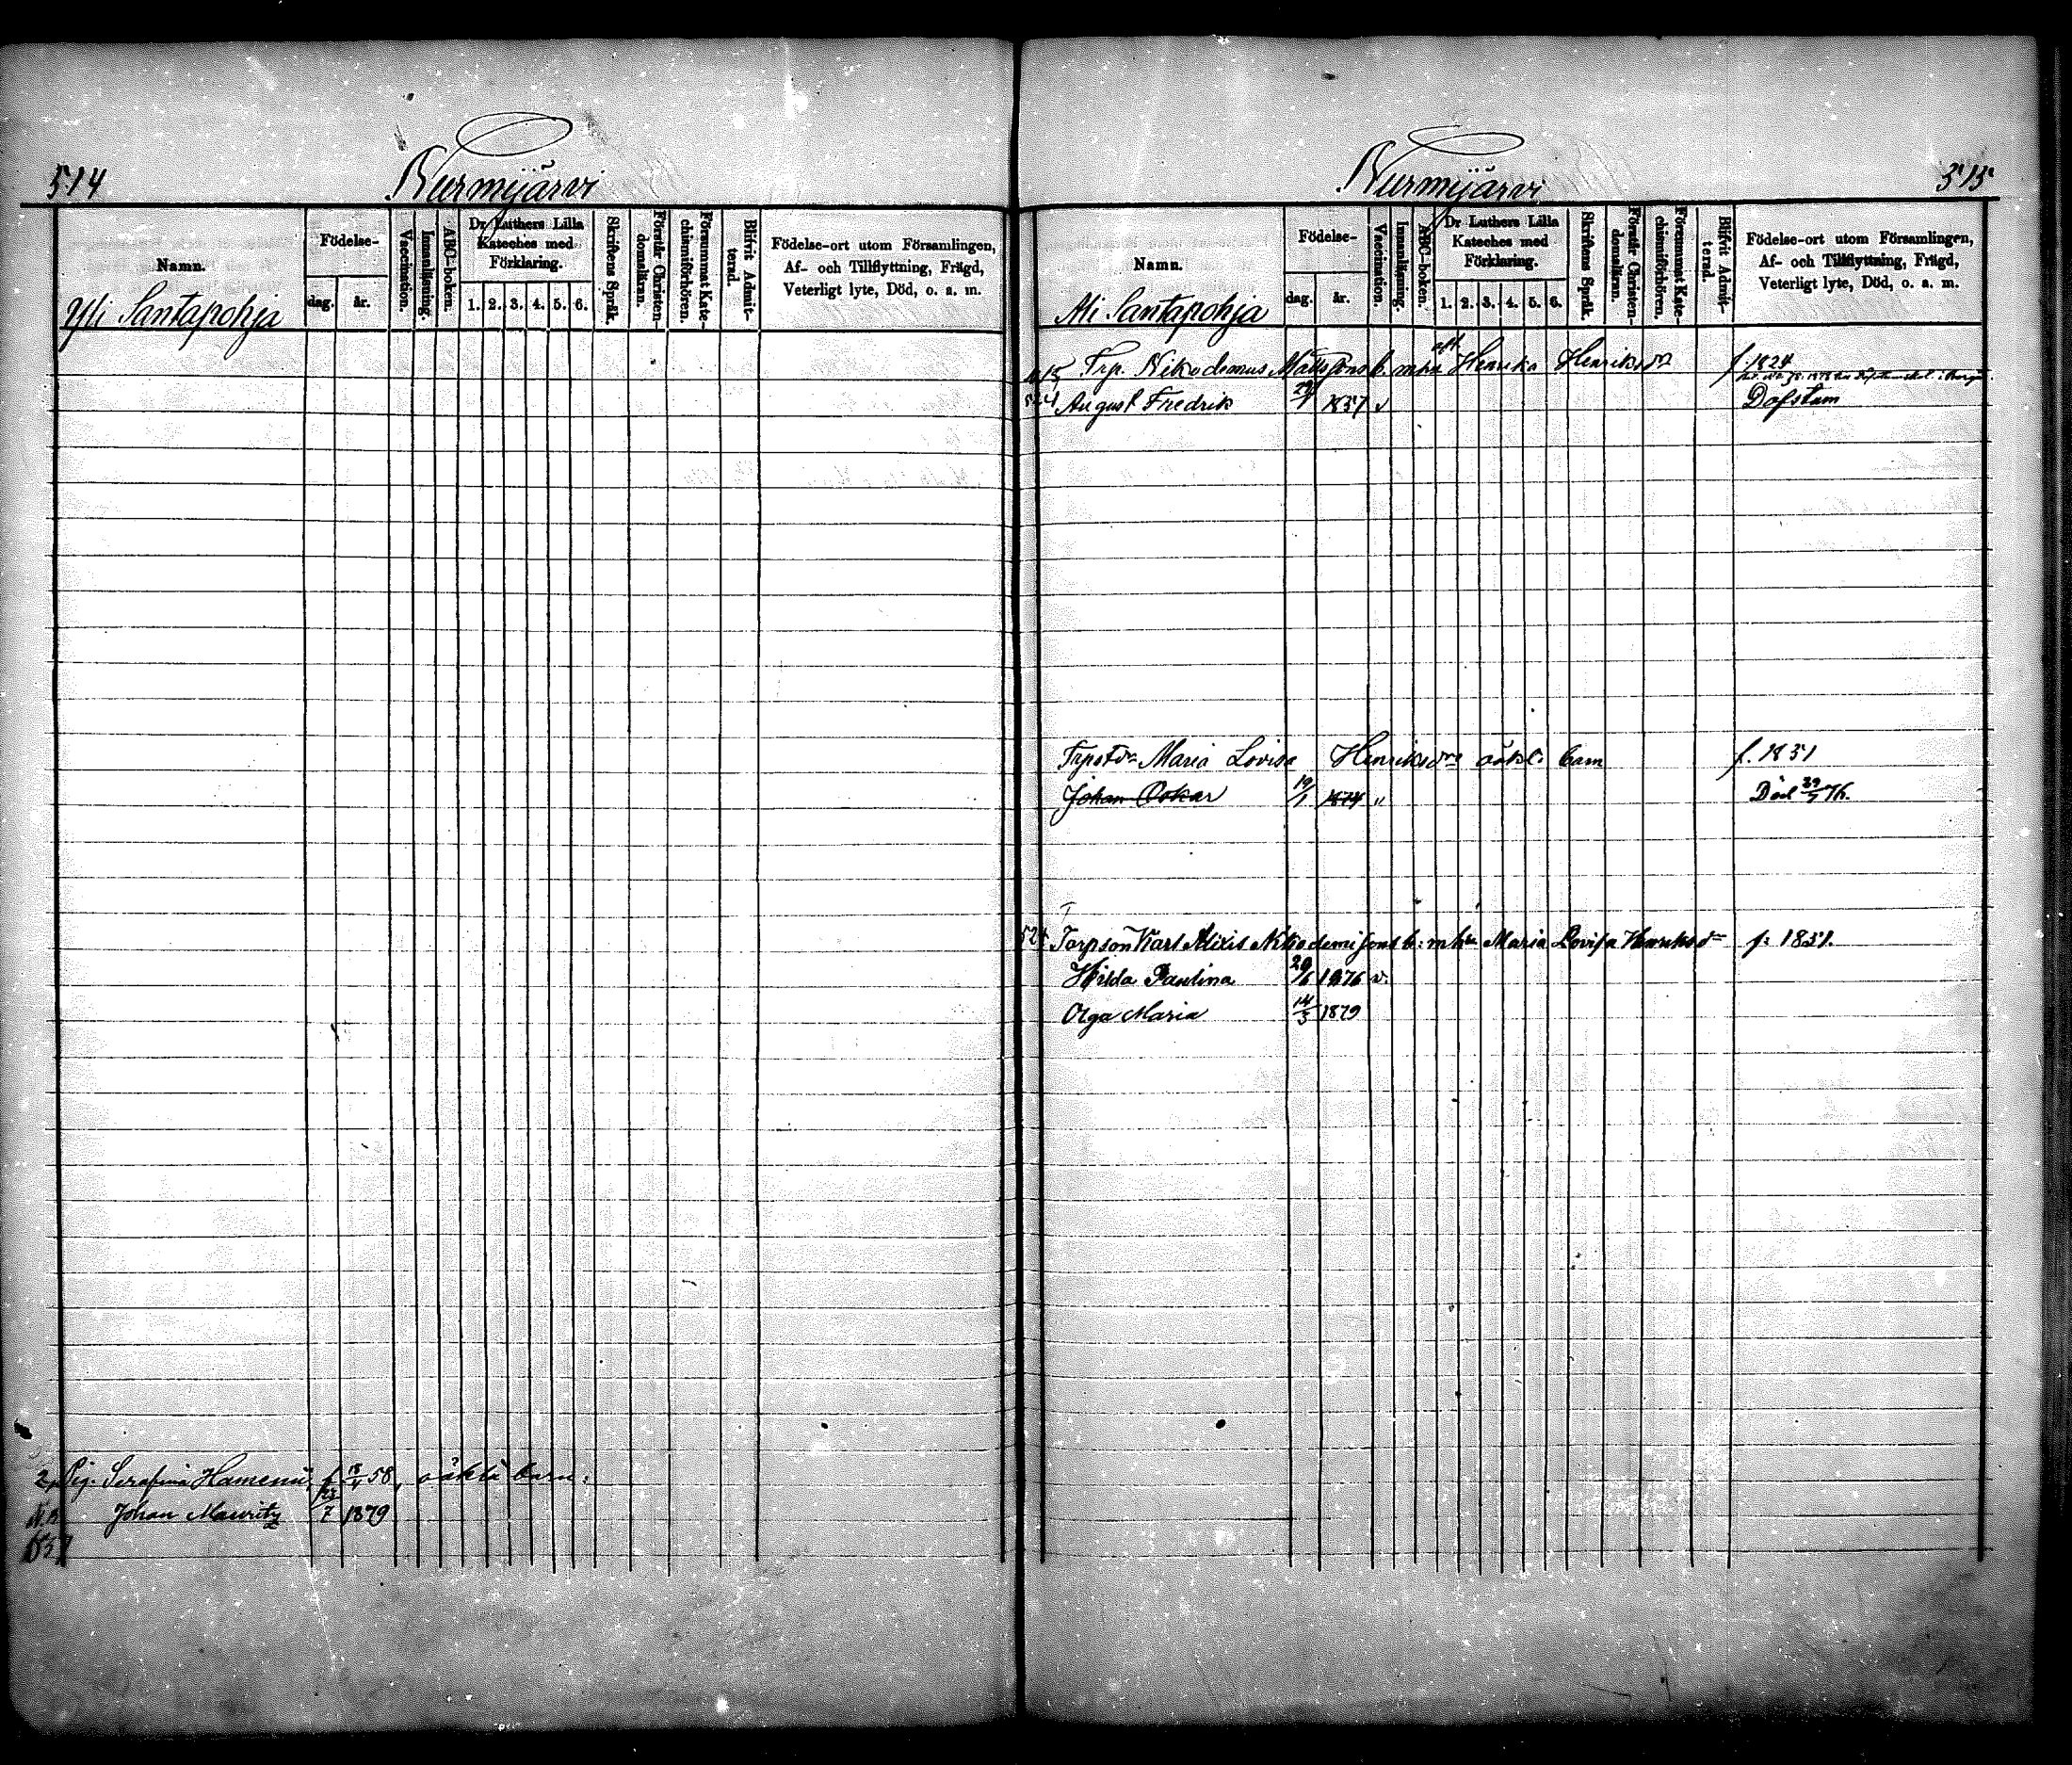 514
Nurmijärvi
Namn.
Födelse-
dag.
år.
Vaccination.
Innanläsning.
ABC-boken.
Dr Luthers Lilla
Kateches med
Förklaring.
1. 2. 3. 4. 5. 6.
Skriftens Språk.
Förstår Christen-
domsläran.
Försummat Kate-
chismiförhören.
Blifvit Admit-
terad.
Födelse-ort utom Församlingen,
Af- och Tillflyttning, Frägd,
Veterligt lyte, Död, o. a. m.
Yli Santapohja
Pig. Serafina f. 18/4 58, oäkta barn:
Johan Mauritz 7 1879
Nurmijärvi
515
Namn.
Födelse-
dag.
år.
Vaccination.
Innanläsning.
ABC-boken.
Dr Luthers Lilla
Kateches med
Förklaring.
1. 2. 3. 4. 5. 6.
Skriftens Språk.
Förstår Christen-
domsläran.
Försummat Kate-
chismiförhören.
Blifvit Admit-
terad.
Födelse-ort utom Församlingen,
Af- och Tillflyttning, Frägd,
Veterligt lyte, Död, o. a. m.
Ali Santapohja
Trp. Nikodemus Mattssons b. m hu Henrika Henriksdr f. 1824
August Fredrik 1857 v Dofstum
Maria Lovisa Henriksdrs oäkt. barn f. 1851
Johan Oskar 19/1 1874 " Död 29/5 76.
Torpson Karl Alexis Nikodemi sons b: m hu Maria Lovisa Henriksdr f: 1851.
Hilda Paulina 29/6 1876 v.
Olga Maria 14/5 1879